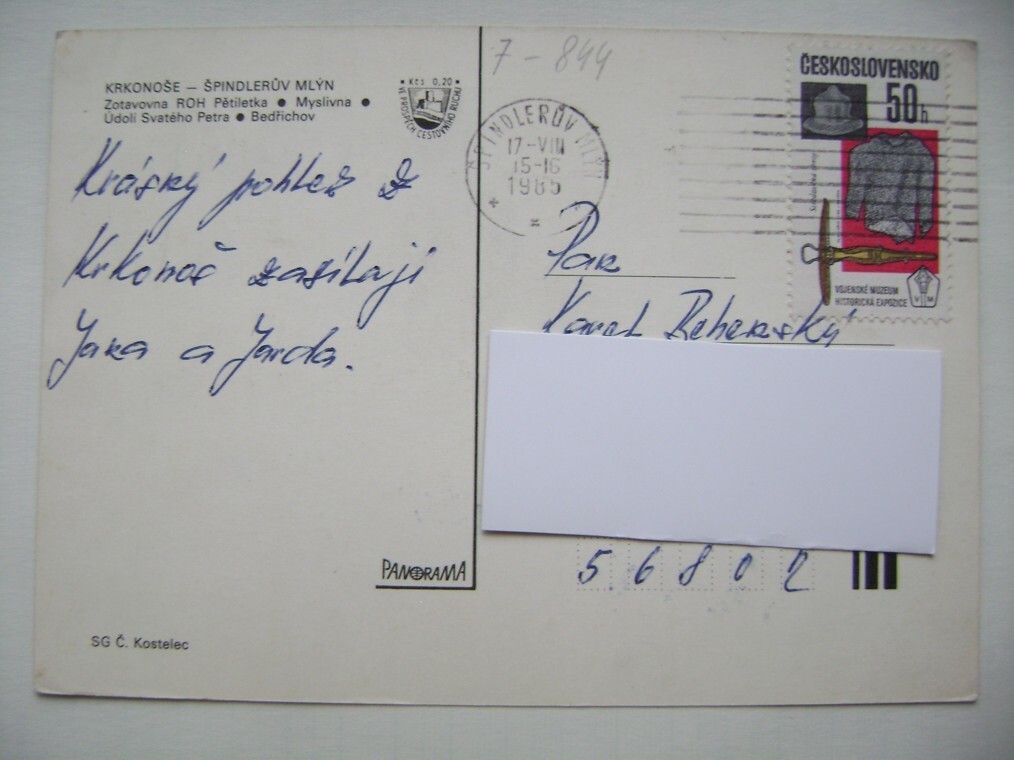 7-844
KRKONOŠE – ŠPINDLERŮV MLÝN
Zotavovna ROH Pětiletka ● Myslivna ●
Údolí Svatého Petra ● Bedřichov
• Kčs 0,20 •
VE PROSPĚCH CESTOVNÍHO RUCHU
ŠPINDLERŮV MLÝN
17.-VIII
15-16
1985
ČESKOSLOVENSKO
50h
VOJENSKÉ MUZEUM
HISTORICKÁ EXPOZICE
VM
Krásný pohled z
Krkonoš zasílají
Jana a Jarda.
Pan
Karel
56802
PANORAMA
SG Č. Kostelec